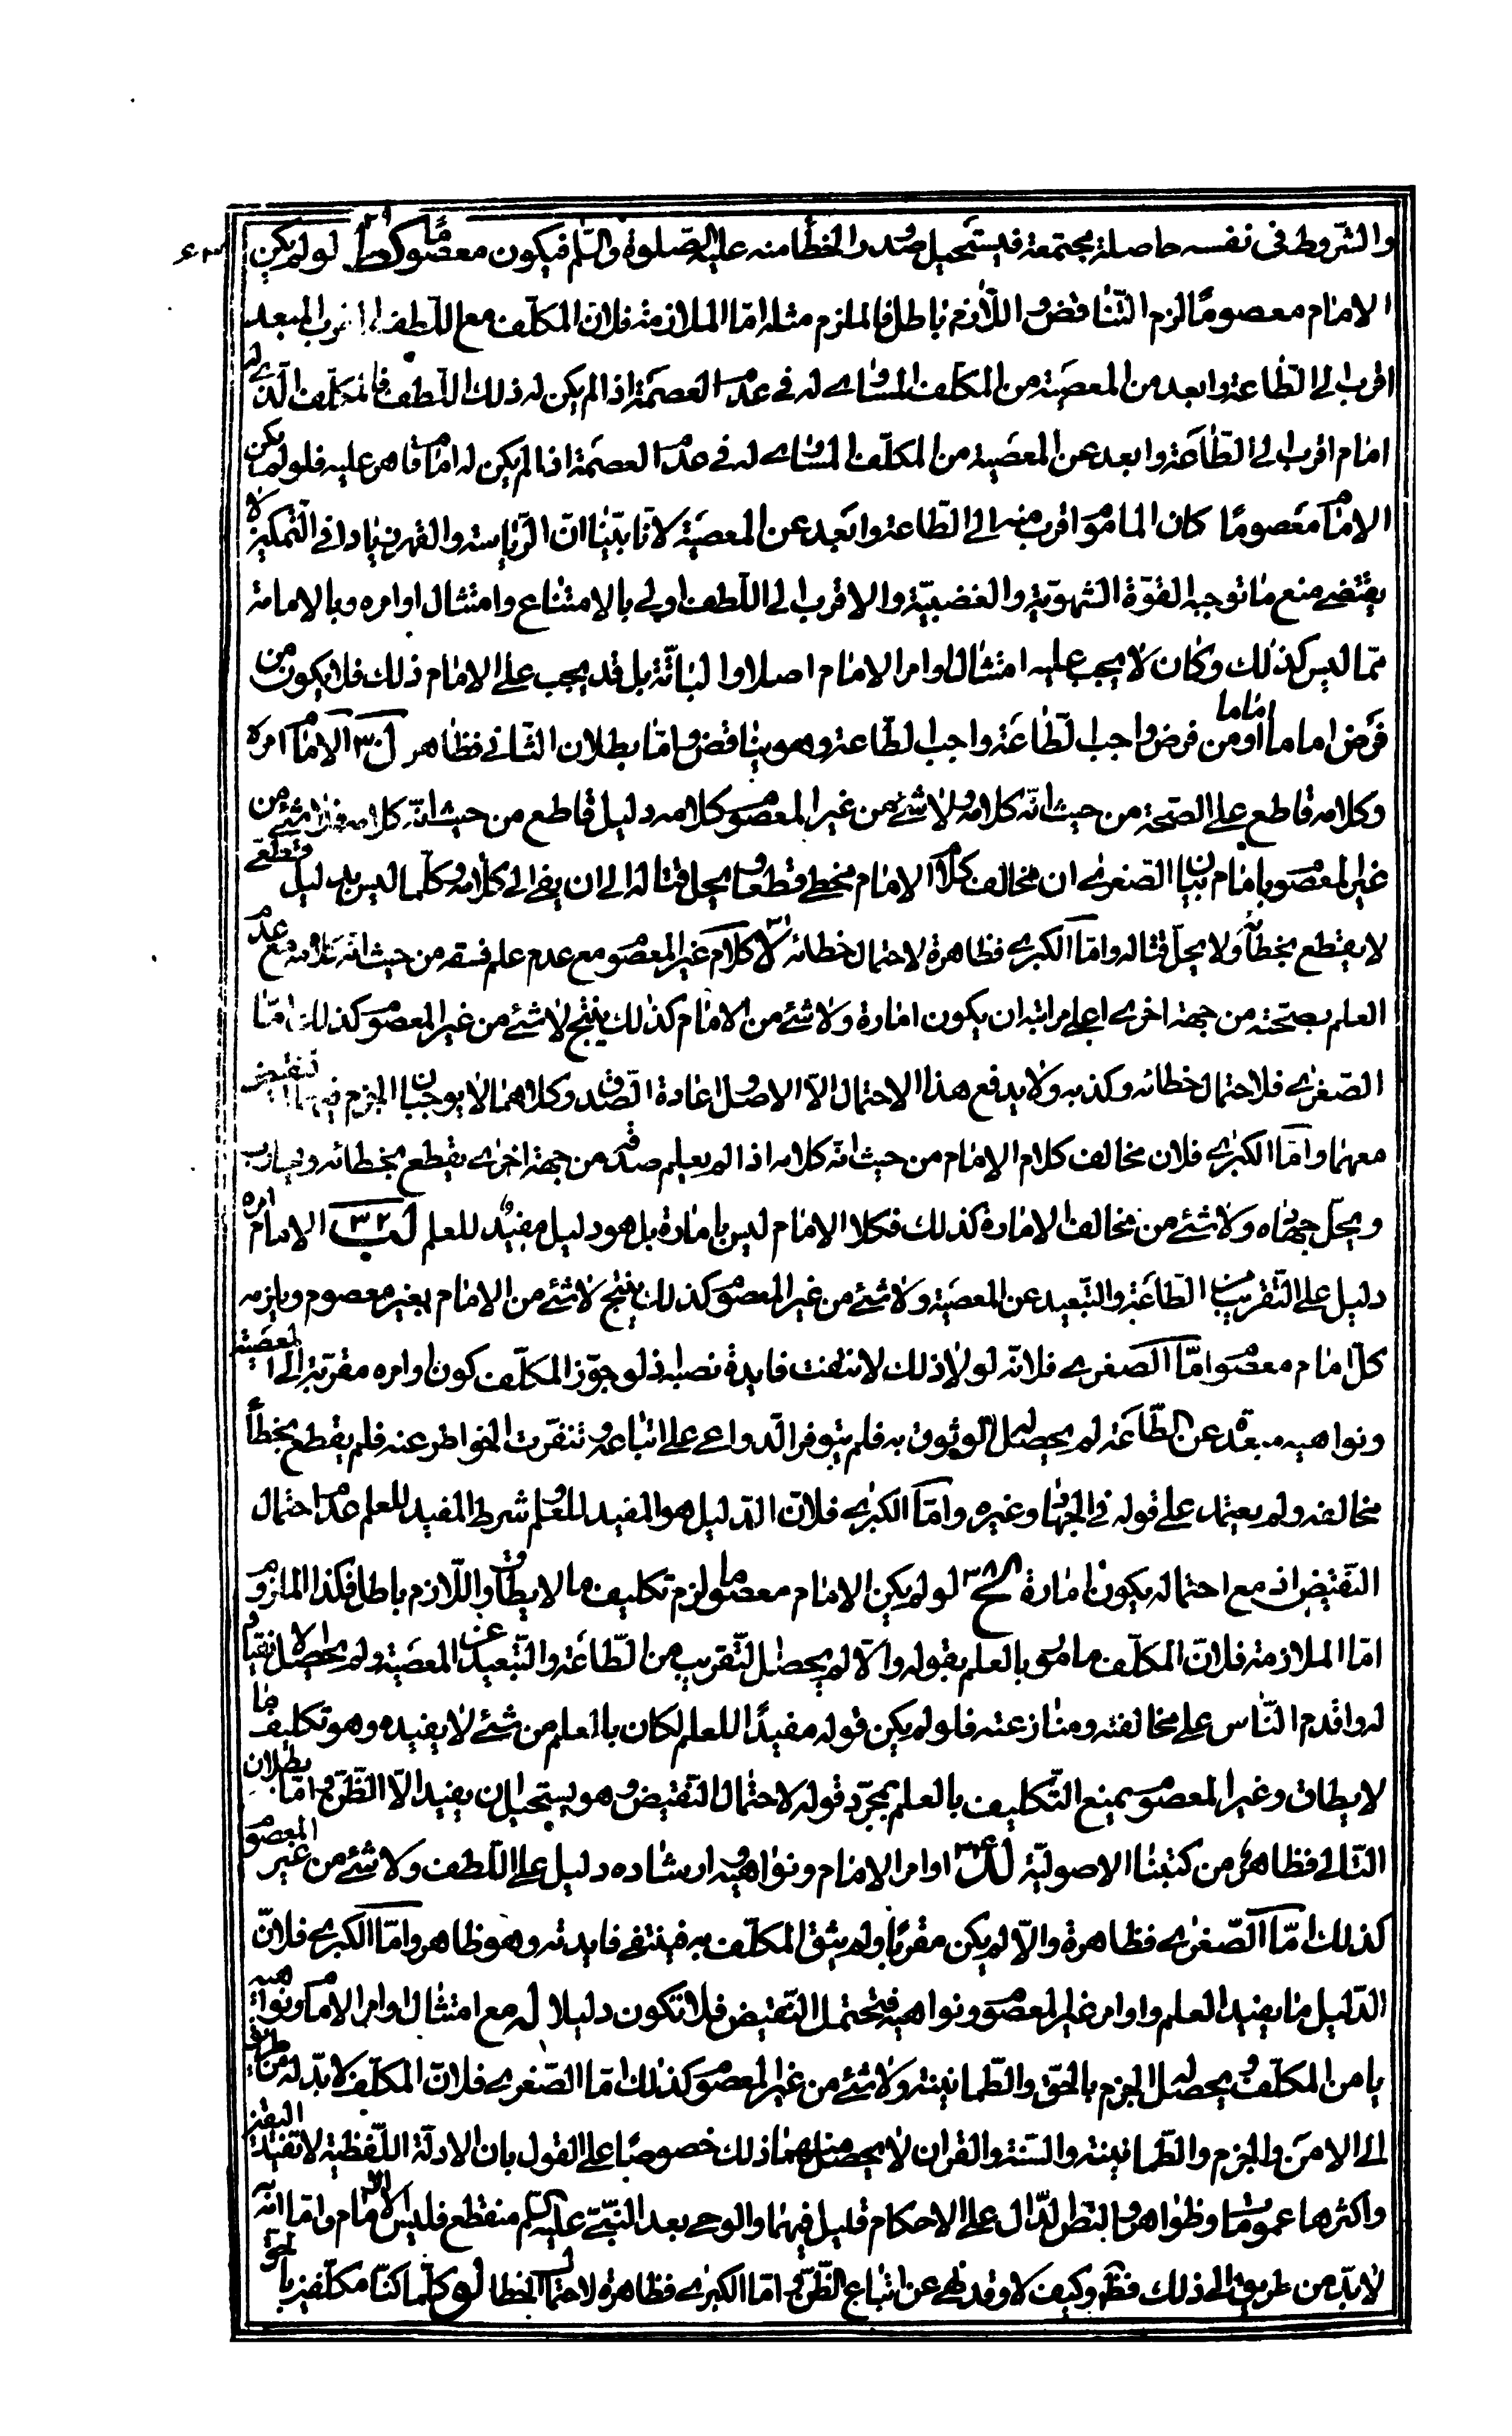 والشروط في نفسه حاصلة مجتمعة فيستحيل صدور الخطأ منه عليه الصلوة والسلم فيكون معصوما كط ٢٩ لو لم يكن
الامام معصومًا لزم التناقض واللازم باطل فالملزوم مثله امّا الملازمة فلان المكلّف مع اللطف المقرب المبعد
اقرب الى الطاعة وابعد من المعصية من المكلف المساوى له فى عدم العصمة اذا لم يكن له ذلك اللطف فالمكلّف الّذى له
امام اقرب الى الطّاعة وابعد عن المعصية من المكلّف المساوى له فى عدم العصمة اذا لم يكن له امام قاهر عليه فلو لم يكن
الامام معصومًا كان المأموم اقرب منه الى الطّاعة وابعد عن المعصية لانّا بيّنّا انّ الرّياسة والقهر زيادة فى التمكين لا
يقتضى منع ما توجبه القوّة الشهويّة والغضبيّة والاقرب الى اللطف اولى بالامتناع وامتثال اوامره وبالامامة
ممّا ليس كذلك وكان لا يجب عليه امتثال اوامر الامام اصلا والبتّة بل قد يجب على الامام ذلك فلا يكون من
فرض اماما اماما ومن فرض واجب الطّاعة واجب الطّاعة وهو يناقض وامّا بطلان الثانى فظاهر ل ٣٠ الامام امره
وكلامه قاطع على الصحّة من حيث انّه كلامه ولا شئ من غير المعصوم كلامه دليل قاطع من حيث انّه كلامه فلا شئ من
غير المعصوم بامام بيان الصغرى ان مخالف كلام الامام مخطئ قطعا ويحل قتاله الى ان يفئ الى كلامه وكلّما ليس بدليل قطعىّ
لا يقطع بخطأه ولا يحلّ قتاله وامّا الكبرى فظاهرة لاحتمال خطائه لا ٣١ كلام غير المعصوم مع عدم علم فسقه من حيث انّه كلامه مع عدم
العلم بصحّته من جهة اخرى اعلى مراتبه ان يكون امارة ولا شئ من الامام كذلك ينتج لا شئ من غير المعصوم كذلك امّا
الصغرى فلاحتمال خطائه وكذبه ولا يدفع هذا الاحتمال الّا الاصل وعادة الصّدق وكلاهما لا يوجبان الجزم فيهما
معهما وامّا الكبرى فلان مخالف كلام الامام من حيث انّه كلامه اذا لم يعلم صدقه من جهة اخرى يقطع بخطائه ويحارب
ويحلّ جهاده ولا شئ من مخالف الامارة كذلك فكلام الامام ليس بامارة بل هو دليل مفيد للعلم لب ٣٢ الامام امره
دليل على التّقريب من الطّاعة والتبعيد عن المعصية ولا شئ من غير المعصوم كذلك ينتج لا شئ من الامام بغير معصوم ويلزمه
كلّ امام معصوم امّا الصغرى فلانّه لولا ذلك لانتفت فايدة نصبه اذ لو جوّز المكلّف كون اوامره مقرّبة الى المعصية
ونواهيه مبعدة عن الطّاعة لم يحصل له الوثوق به فلم يتوفر الدواعى على اتباعه وتنفرت الخواطر عنه فلم يقطع بخطأ
مخالفه ولم يعتمد على قوله فى الجهاد وغيره وامّا الكبرى فلان الدّليل هو المفيد للعلم وشرط المفيد للعلم عدم احتمال
النّقيض اذ مع احتماله يكون امارة لج ٣٣ لو لم يكن الامام معصوما لزم تكليف ما لا يطاق واللّازم باطل فكذا الملزوم
امّا الملازمة فلانّ المكلّف مامور بالعلم بقوله والّا لم يحصل التّقريب من الطّاعة والتّبعيد عن المعصية ولم يحصل الانقياد
له واقدم النّاس على مخالفته ومنازعته فلو لم يكن قوله مفيدًا للعلم لكان بالعلم من شئ لا يفيده وهو تكليف ما
لا يطاق وغير المعصوم يمنع التّكليف بالعلم بمجرّد قوله لاحتمال النّقيض وهو يستحيل ان يفيد الّا الظّنّ وامّا بطلان
التالى فظاهر من كتبنا الاصوليّة لد ٣٤ اوامر الامام ونواهيه وارشاده دليل على اللّطف ولا شئ من غير المعصوم
كذلك امّا الصّغرى فظاهرة والّا لم يكن مقربًا ولم يثق المكلّف به فينتفى فايدته وهو ظاهر وامّا الكبرى فلانّ
الدّليل ما يفيد العلم واوامر غير المعصوم ونواهيه فتحتمل النّقيض فلا تكون دليلا له مع امتثال اوامر الامام ونواهيه
يامن المكلّف ويحصل له الجزم بالحق والطّمانينة ولا شئ من غير المعصوم كذلك امّا الصّغرى فلانّ المكلّف لا بدّ له من طريق
الى الامن والجزم والطّمانينة والسّنة والقران لا يحصل منهما ذلك خصوصًا على القول بان الادلّة اللّفظية لا تفيد اليقين
واكثرها عمومات وظواهر والنص الدّال على الاحكام قليل فيهما والوحى بعد النّبىّ عليه السّلم منقطع فليس الّا الامام وامّا انّه
لا بدّ من طريق الى ذلك فظاهر وكيف لا وقد نهى عن اتباع الظّنّ امّا الكبرى فظاهرة لاحتمال الخطا لو كلّما كنّا مكلّفين بالحق